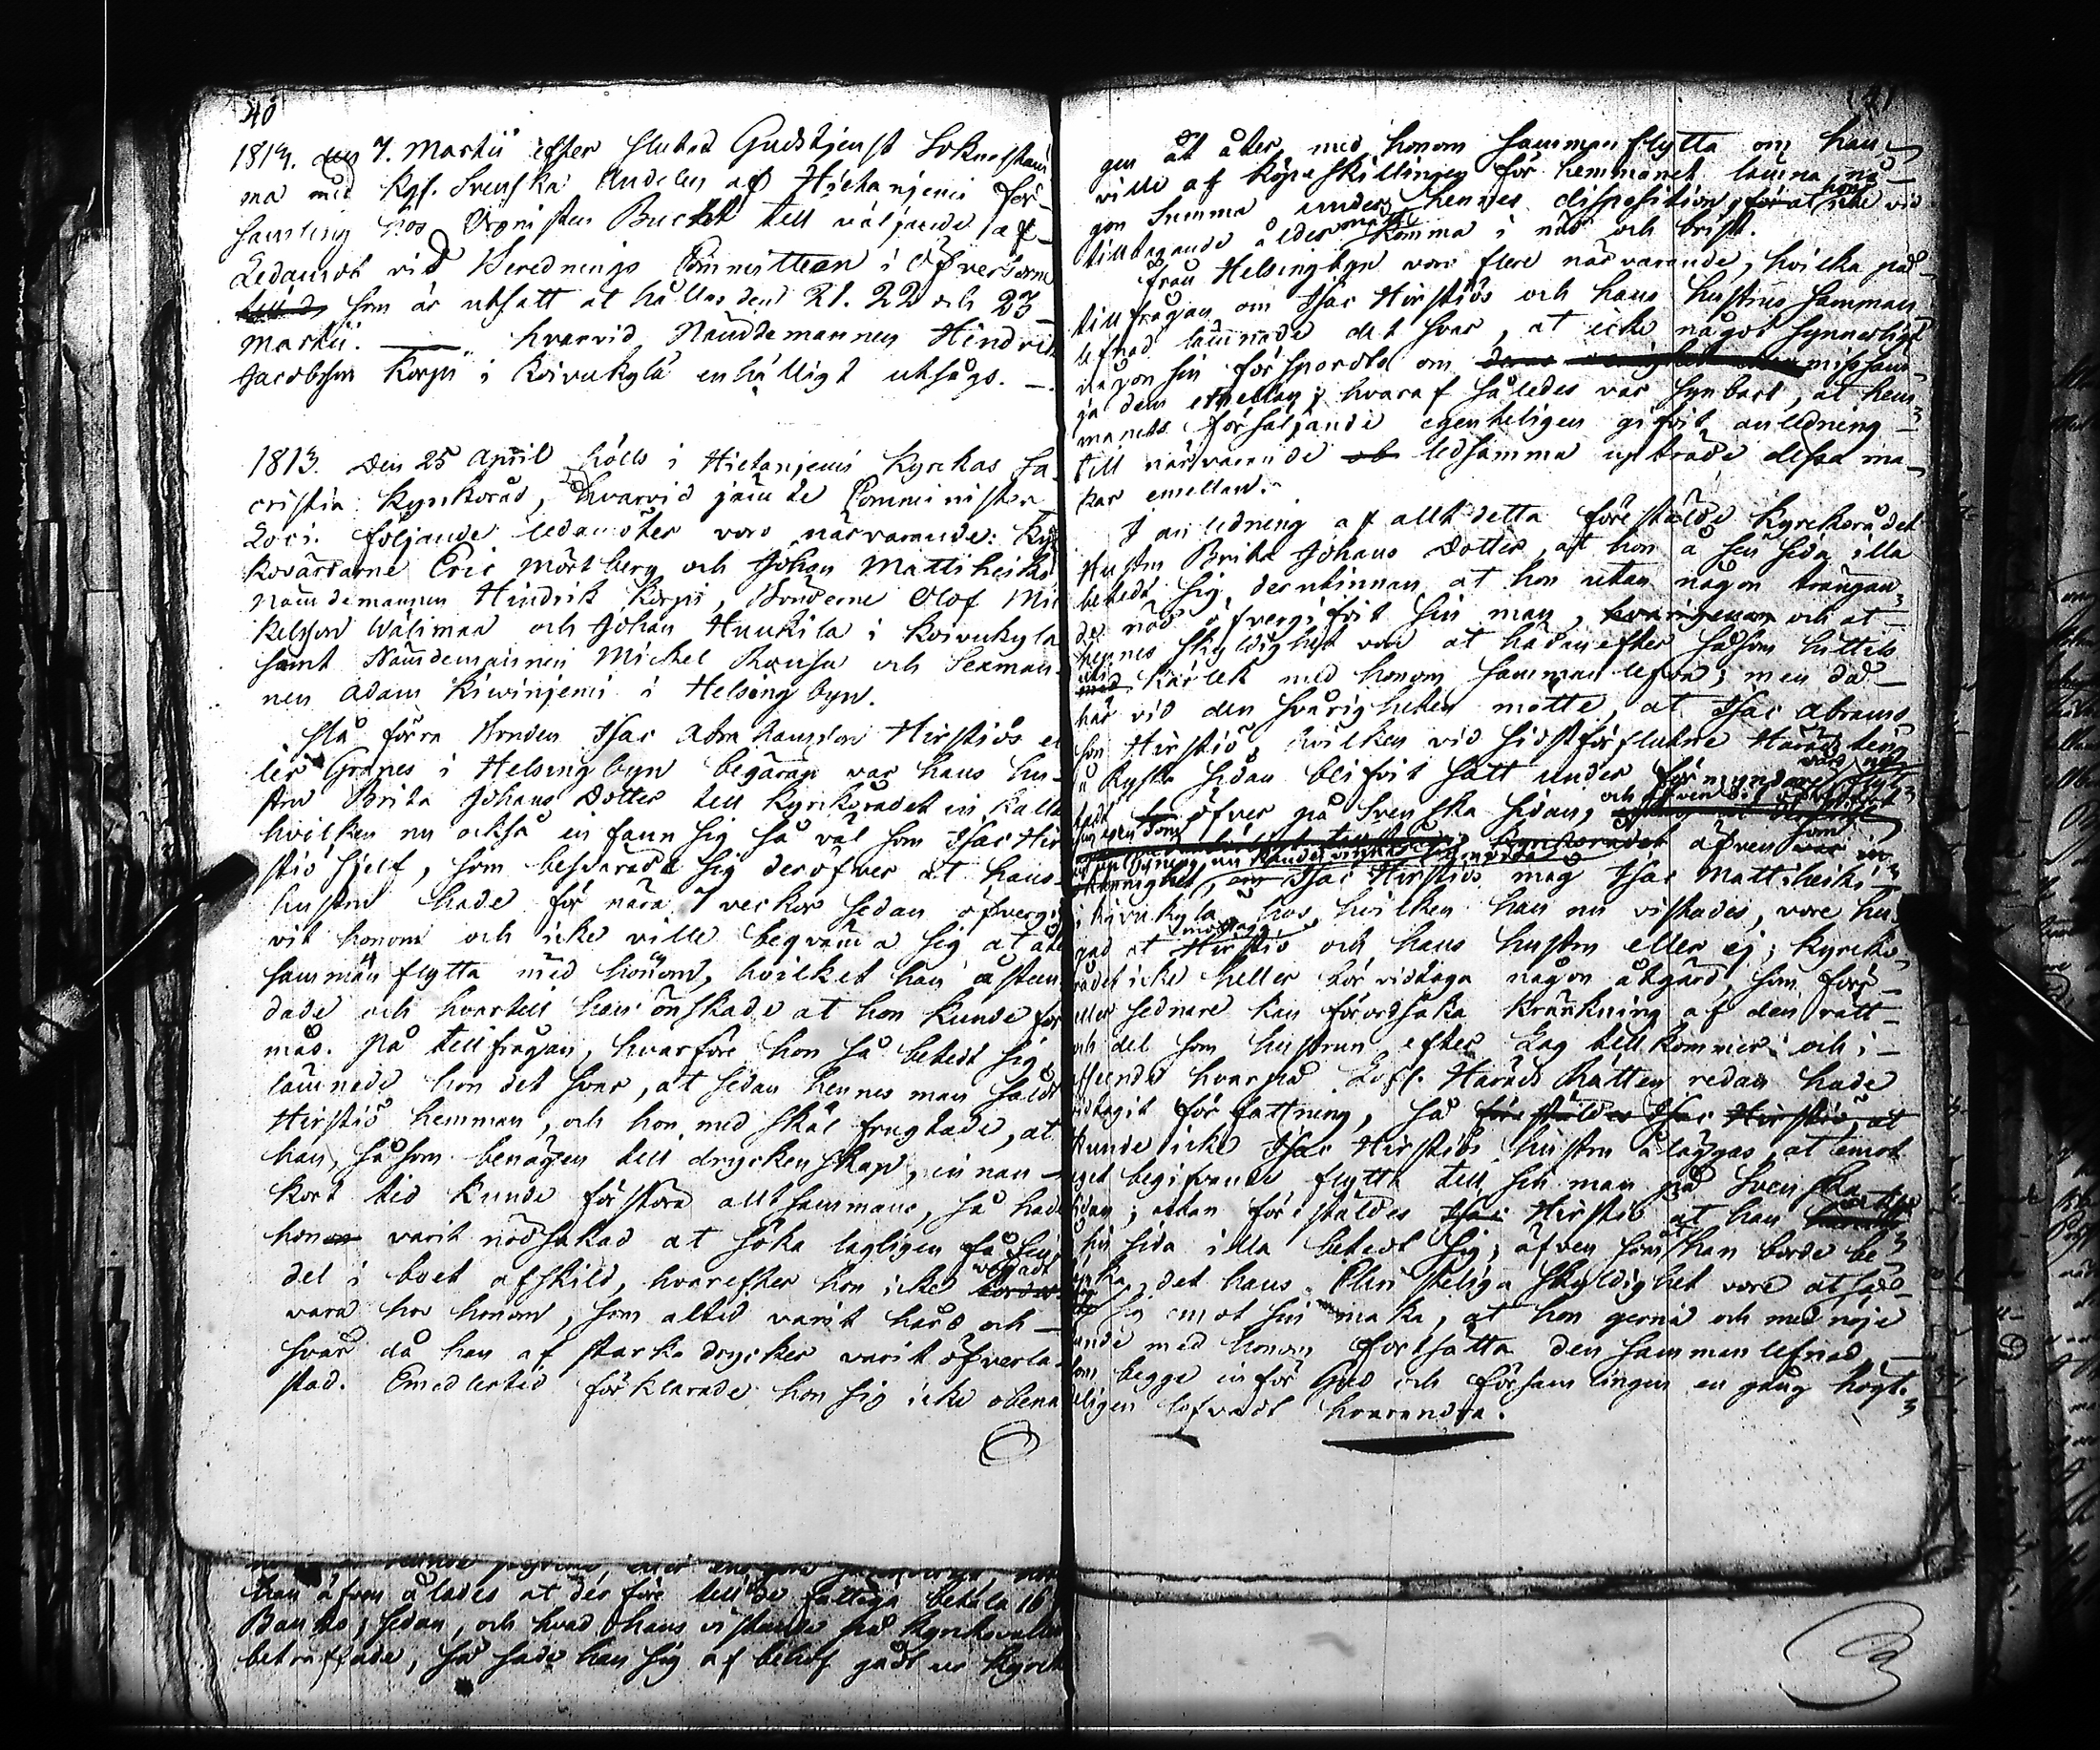 40
1813. den 7. Martii efter slutad Gudstjenst Soknestäm
ma med Kgl. Svenska Andelen af Hietaniemi För-
samling hos Comministern Bucht till väljande af
Ledamot vid Berednings Committeen i Öfvertorne
som är utsatt at hållas den 21. 22 och 23
Martii. ___ hvarvid Nämdemannen Hindrich
Jacobsson Korpi i Koivukylä enhälligt utsågs. —
1813. Den 25 April hölls i Hietaniemi Kyrckas Sa-
cristia Kyrkoråd, hvarvid jämte Comministern
Loci följande ledamöter voro närvarande: Kyr
kovärdarne Eric Mörtberg och Johan Mattiheiki
Nämdemannen Hindrik Korpi, Bönderne Olof Mic
kelsson Walimaa och Johan Huukila i Koivukylä
samt Nämdemannen Mickel Rousu och Sexman-
nen Adam Kiwiniemi i Helsingbyn.
På förra Bonden Isac Abrahamsson Hirstiös el
ler Grapes i Helsingbyn begäran var hans hu-
stru Brita Johans Dotter till Kyrckorådet in kallad
hvilken nu också in fann sig så väl som Isac Hir
stiö sjelf, som besvärade sig deröfver at hans
hustru hade för nära 7 veckor sedan öfvergi
vit honom och icke ville beqväma sig at åter
samman flytta med honom, hvilket han åstun
dade och hvartill han önskade at hon kunde för
mås. På tillfrågan, hvarföre hon så betedt sig,
lämnade hon det svar, at sedan hennes man sålt
Hirstiö hemman, och hon med skäl frugtade, at
han, såsom benägen till dryckenskap, in nan —
kort tid kunde förstöra alltsammans, så hade
hon varit nödsakad at söka lagligen få sin
del i boet afskild, hvarefter hon icke vågadt
vara hos honom, som altid varit hård och —
svår då han af starka drycker varit öfverla-
stad. Emedlertid förklarade hon sig icke obenä
han äfven ålades at derföre till de fattiga betala 16
Banko; sedan, och hvad hans vistande på Kyrkovallen
beträffade, så sade han sig af behof gådt ur Kyrck
41
gen åt åter med honom sammanflytta om han
ville af köpeskillingen för hemmanet lämna nå-
gon Summa under hennes disposition, för at hon icke vid
tilltagande ålder måtte komma i nöd och brist.
Från Helsingbyn voro flere närvarande, hvilka på
tillfrågan om Isac Hirstiös och hans hustrus samman
lefnad lämnade det svar, at icke något synnerligt
någonsin försports om missäm-
ja dem emellan; hvaraf således var synbart, at hem
manets försäljande egenteligen gifvit anledning
till närvarande ledsamma uptråde dessa ma-
kar emellan.
I anledning af allt detta föreställde Kyrckorådet
Hustru Brita Johans Dotter, at hon å sin sida illa
betedt sig derutinnan at hon utan någon trängan
de nöd öfvergifvit sin man, och at —
hennes skyldighet vore at hädanefter såsom hittils
uti kärlek med honom sammanlefva; men då —
här vid den svårigheten mötte, at Isac Abrams
son Hirstiö, hvilken vid sidstförflutne Härads ting
å Ryska sidan blifvit satt under förmyndare
öfver på Svenska sidan,
äfven som
okunnighet, om Isac Hirstiös måg Isac Mattiheiki
i Koivukyla hos hvilken han nu vistades, vore hu
gad at mottaga Hirstiö och hans hustru eller ej; Kyrcko
rådet icke heller bör vidtaga någon åtgärd, som förr
eller sednare kan förordsaka kränkning af den rätt
och del som hustrun efter Lag tillkommer och i —
afseende hvarpå Lofl. Härads Rätten redan hade
vidtagit författning, så
kunde icke Isac Hirstiös hustru åläggas, at emot
eget begifvande flytta till sin man på Svenska
sidan; utan föreställdes Hirstiö at han
å sin sida illa betedt sig, äfven som han borde be
tänka, det hans Christeliga skyldighet vore at så
sig emot sin maka, at hon gerna och med nöje
kunde med honom fortsätta den sammanlefnad,
som begge inför Gud och Församlingen en gång högti
deligen lofvadt hvarandra.